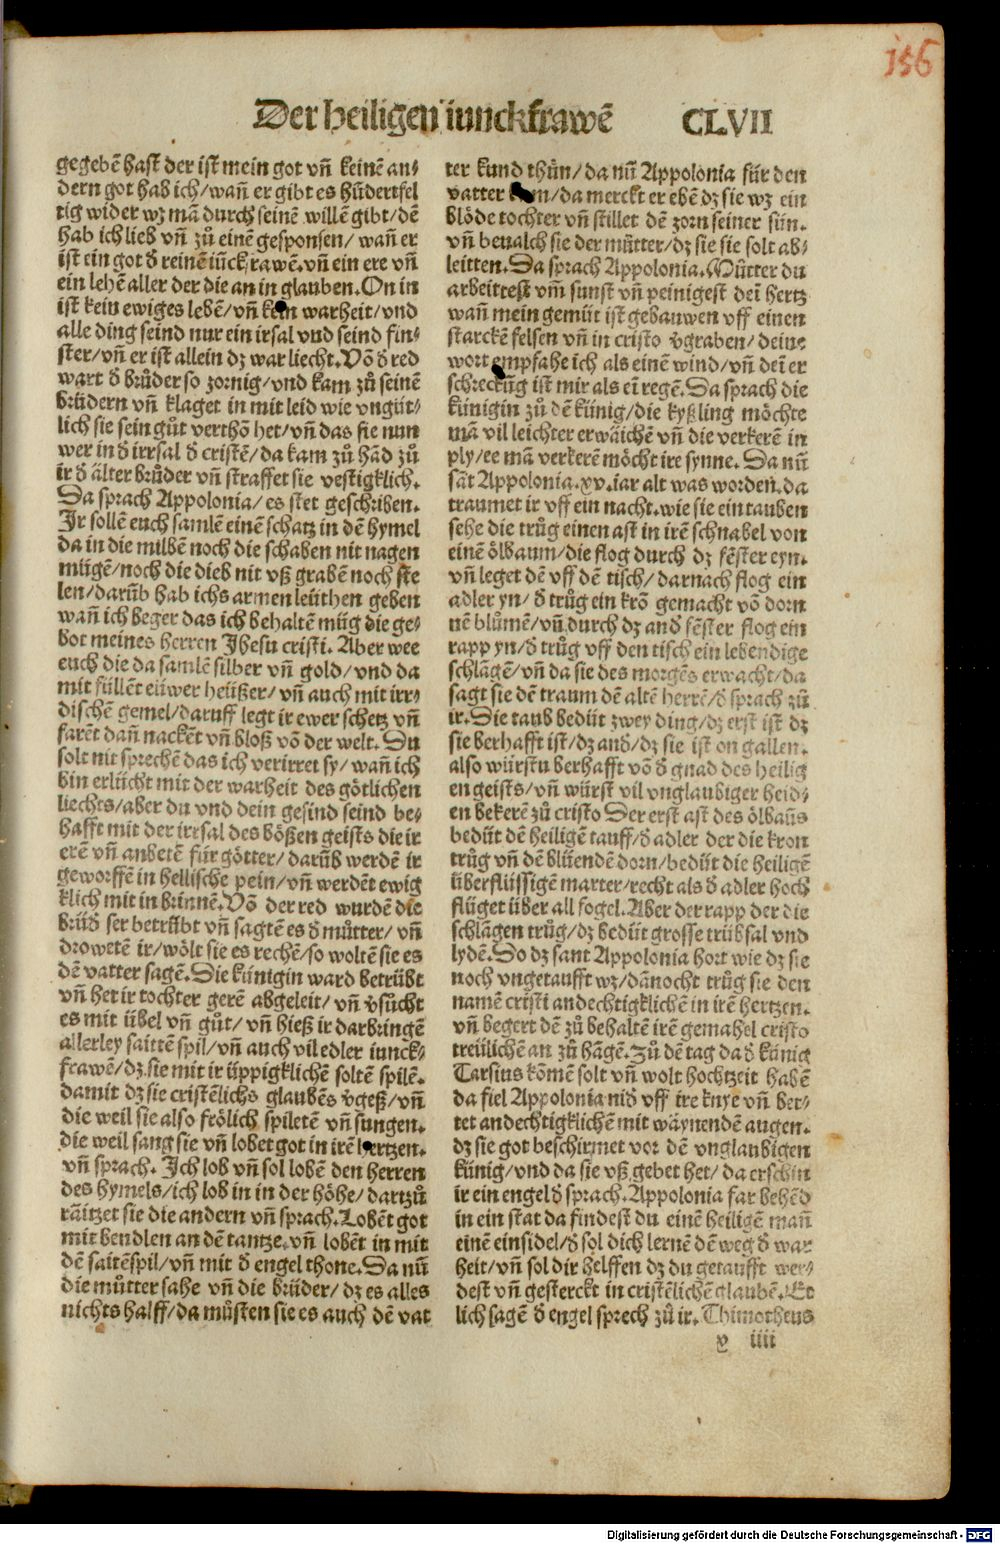 156
Der heiligen iunckfrawē CLVII
gegebē hast der ist mein got vn̄ keinē an⸗
dern got hab ich/wan̄ er gibt es hūdertfel
tig wider wz mā durch seinē willē gibt/dē
hab ich lieb vn̄ zů einē gesponsen/ wan̄ er
ist ein got d̕ reinē iūckfrawē.vn̄ ein ere vn̄
ein lehē aller der die an in glauben.On in
ist kein ewiges lebē/vn̄ kein warheit/vnd
alle ding seind nur ein irsal vnd seind fin⸗
ster/vn̄ er ist allein dz war liecht.Vō d̕ red
wart d̕ brůder so zornig/vnd kam zů seinē
brüdern vn̄ klaget in mit leid wie vngüt⸗
lich sie sein gůt verthō het/vn̄ das sie nun
wer in d̕ irrsal d̕ cristē/da kam zů hād zů
ir d̕ älter brůder vn̄ straffet sie vestigklich.
Da sprach Appolonia/es stet geschriben.
Ir sollē euch samlē einē schatz in dē hymel
da in die milbē noch die schaben nit nagen
mügē/noch die dieb nit vß grabē noch ste
len/darūb hab ichs armen leüthen geben
wan̄ ich beger das ich behaltē müg die ge⸗
bot meines herren Jhesu cristi. Aber wee
euch die da samlē silber vn̄ gold/vnd da
mit füllēt eüwer heüßer/vn̄ auch mit irr⸗
dischē gemel/daruff legt ir ewer schetz vn̄
farēt dan̄ nackēt vn̄ bloß vō der welt. Du
solt nit sprechē das ich verirret sy/ wan̄ ich
bin erlücht mit der warheit des götlichen
liechts/aber du vnd dein gesind seind be⸗
hafft mit der irrsal des bößen geists die ir
erē vn̄ anbetē für götter/darūb werdē ir
geworffē in hellische pein/vn̄ werdēt ewig
klich mit in brinnē.Vō der red wurdē die
brüd̕ ser betrübt vn̄ sagtē es d̕ můtter/ vn̄
drowetē ir/wölt sie es rechē/so woltē sie es
dē vatter sagē.Die künigin ward betrübt
vn̄ het ir tochter gerē abgeleit/ vn̄ v̕sůcht
es mit übel vn̄ gůt/ vn̄ hieß ir darbringē
allerley saittē spil/vn̄ auch vil edler iunck⸗
frawē/dz sie mit ir üppigklichē soltē spilē.
damit dz sie cristēlichs glaubēs v̕geß/vn̄
die weil sie also frölich spiletē vn̄ sungen.
die weil sang sie vn̄ lobet got in irē hertzen.
vn̄ sprach. Ich lob vn̄ sol lobē den herren
des hymels/ich lob in in der höhe/ dartzů
rāitzet sie die andern vn̄ sprach.Lobēt got
mit bendlen an dē tantze.vn̄ lobēt in mit
dē saitēspil/vn̄ mit d̕ engel thone.Da nū
die můtter sahe vn̄ die brüder/ dz es alles
nichts halff/da můsten sie es auch dē vat
ter kund thůn/da nū Appolonia für den
vatter /da merckt er ebē dz sie wz ein
blöde tochter vn̄ stillet dē zorn seiner sün.
vn̄ beualch sie der můtter/dz sie sie solt ab⸗
leitten.Da sprach Appolonia.Můtter du
arbeittest vm̄ sunst vn̄ peinigest dei hertz
wan̄ mein gemüt ist gebauwen vff einen
starckē felsen vn̄ in cristo v̕graben/ deine
wort empfahe ich als einē wind/vn̄ dei er
schreckūg ist mir als ei regē.Da sprach die
künigin zů dē künig/die kyßling möchte
mā vil leichter erwäichē vn̄ die verkerē in
ply/ee mā verkerē möcht ire synne. Da nū
sāt Appolonia.xv.iar alt was worden.da
traumet ir vff ein nacht.wie sie ein tauben
sehe die trůg einen ast in irē schnabel von
einē ölbaum/die flog durch dz fēster eyn.
vn̄ leget dē vff dē tisch/ darnach flog ein
adler yn/ d̕ trůg ein krō gemacht vō dorn
nē blůmē/vn̄ durch dz and̕ fēster flog ein
rapp yn/d̕ trůg vff den tisch ein lebendige
schlāgē/vn̄ da sie des morgēs erwacht/da
sagt sie dē traum dē altē herrē/d̕ sprach zů
ir.Die taub bedüt zwey ding/dz erst ist dz
sie berhafft ist/dz and̕/dz sie ist on gallen.
also würstu berhafft vō d̕ gnad des heilig
en geists/vn̄ würst vil vnglaubiger heid⸗
en bekerē zů cristo Der erst ast des ölbaūs
bedüt dē heiligē tauff/d̕ adler der die kron
trůg vn̄ dē blüendē dorn/bedüt die heiligē
überflüssigē marter/recht als d̕ adler hoch
flüget über all fogel.Aber der rapp der die
schlāgen trůg/dz bedüt grosse trübsal vnd
lydē.Do dz sant Appolonia hort wie dz sie
noch vngetaufft wz/dānocht trůg sie den
namē cristi andechtigklichē in irē hertzen.
vn̄ begert dē zů behaltē irē gemahel cristo
treülichē an zů hāgē.Zů dē tag da d̕ künig
Tarsius kōmē solt vn̄ wolt hochtzeit habē
da fiel Appolonia nid̕ vff ire knye vn̄ bet⸗
tet andechtigklichē mit wäynendē augen.
dz sie got beschirmet vor dē vnglaubigen
künig/vnd da sie vß gebet het/ da erschin
ir ein engel d̕ sprach.Appolonia far behēd
in ein stat da findest du einē heiligē man̄
einē einsidel/d̕ sol dich lernē dē weg d̕ war
heit/vn̄ sol dir helffen dz du getaufft wer⸗
dest vn̄ gesterckt in cristēlichē glaubē. Et
lich sagē d̕ engel sprech zů ir. Thimotheus
y iiii
Digitalisierung gefördert durch die Deutsche Forschungsgemeinschaft - DFG